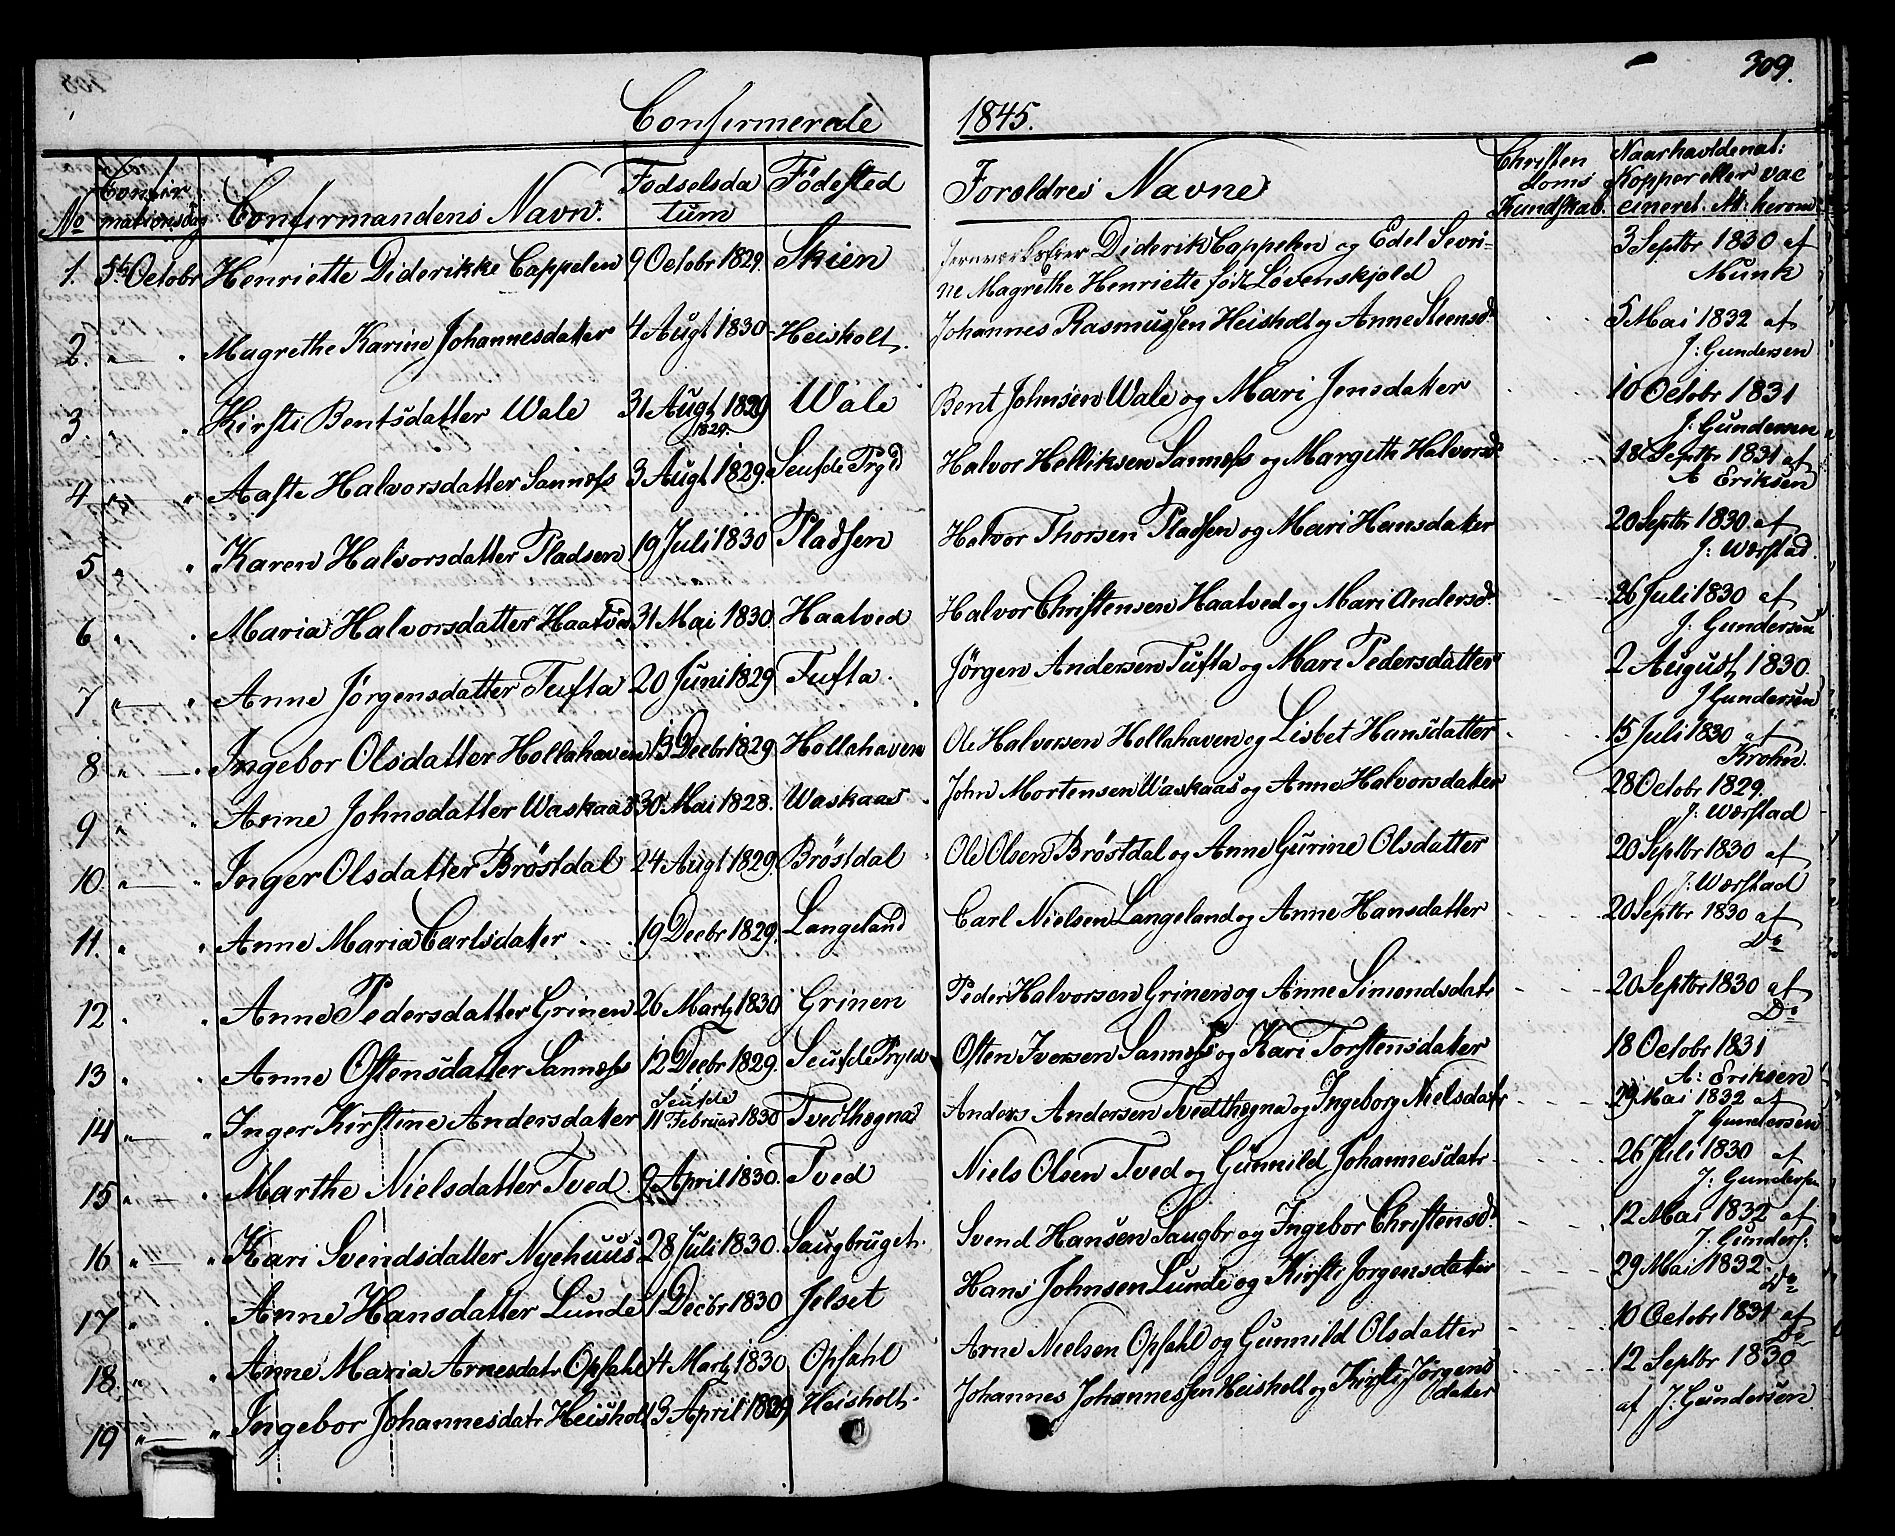 309.
Confirmerede 1845.
No Confirmationsdag Confirmandens Navn. Fødselsdatum Fødested Foreldres Navne Christendoms Kundskab. Naar havt de nat: Kopper eller vaccineret. At: herom
1. 5te Octobr Henriette Diderikke Cappelen 9 Octobr 1829. Skien Jernværkseier Diderik Cappelen og Edel Sevri- 3 Septbr 1830 af
ne Magrethe Henriette født Løvenskjold Munk
2. " " Magrethe Karine Johannesdatter 4 Augt 1830 Heisholt. Johannes Rasmussen Heisholt og Anne Steensd. 5 Mai 1832 af
J: Gundersen
3. " " Kirsti Bentsdatter Wale 31 Augt 1829 Wale Bent Johnsen Wale og Mari Jensdatter 10 Octobr 1831
1829. J: Gundersen
4 " " Aaste Halvorsdatter Sannæss 3 Augt 1829. Seufde Pryd Halvor Helliksen Sannæss og Margeth Halvorsd. 18 Septbr 1831 af
A Eriksen
5 " " Karen Halvorsdatter Pladsen 19 Juli 1830 Pladsen Halvor Thorsen Pladsen og Mari Hansdatter 20 Septbr 1830 af
J: Wærstad.
6 " " Maria Halvorsdatter Haatved 31 Mai 1830 Haatved Halvor Christensen Haatved og Mari Andersd. 26 Juli 1830 af
J: Gundersen
7 " " Anne Jørgensdatter Tufta 20 Juni 1829 Tufta. Jørgen Andersen Tufta og Mari Pedersdatter 2 August 1830.
J Gundersen
8 " " Ingebor Olsdatter Hollahaven 13 Decbr 1829 Hollahaven Ole Halvorsen Hollahaven og Lisbet Hansdatter 15 Juli 1830 af
Krohn.
9 " " Anne Johnsdatter Waskaas 30 Mai 1828. Waskaas John Mortensen Waskaas og Anne Halvorsdatter 28 Octobr 1829.
J: Wærstad
10 " " Inger Olsdatter Brøstdal 24 Augt 1829. Brøstdal Ole Olsen Brøstdal og Anne Gurine Olsdatter 20 Septbr 1830 af
J: Wærstad
11. " " Anne Maria Carlsdatter 19 Decbr 1829. Langeland Carl Nielsen Langeland og Anne Hansdatter 20 Septbr 1830 af
Do
12 " " Anne Pedersdatter Grinen 26 Marts 1830 Grinen Peder Halvorsen Grinen og Anne Simonsdatr 20 Septbr 1830 af
Do
13 " " Anne Ostensdatter Sannæss 12 Decbr 1829. Seufde Pryld Osten Iversen Sannæss og Kari Torstensdatter 18 Octobr 1831
A: Eriksen
14 " " Inger Kirstine Andersdatter Seufde 11 Februar 1830 Tvedthegna Anders Andersen Tvedthegna og Ingeborg Nielsdatr 29 Mai 1832 af
J Gundersen
15 " " Marthe Nielsdatter Tved 9 April 1830. Tved Niels Olsen Tved og Gunnild Johannesdatr 26 Juli 1830 af
J: Gundersen
16 " " Kari Svendsdatter Nyehuus 28 Juli 1830. Saugbruget. Svend Hansen Saugbr og Ingebor Christensd. 12 Mai 1832 af
J: Gunders:
17 " " Anne Hansdatter Lunde 1 Decbr 1830 Jelset Hans Johnsen Lunde og Kirsti Jorgensdatter 29 Mai 1832.
Do
18. " " Anne Maria Arnesdatr Opsahl 4 Marts 1830 Opsahl Arne Nielsen Opsahl og Gunnild Olsdatter 10 Octobr 1831 af
Do
19 " " Ingebor Johannesdatr Heisholt 3 April 1829 Heisholt. Johannes Johannessen Heisholt og Kirsti Jørgensdatter 12 Septbr 1830
af J: Gundersen